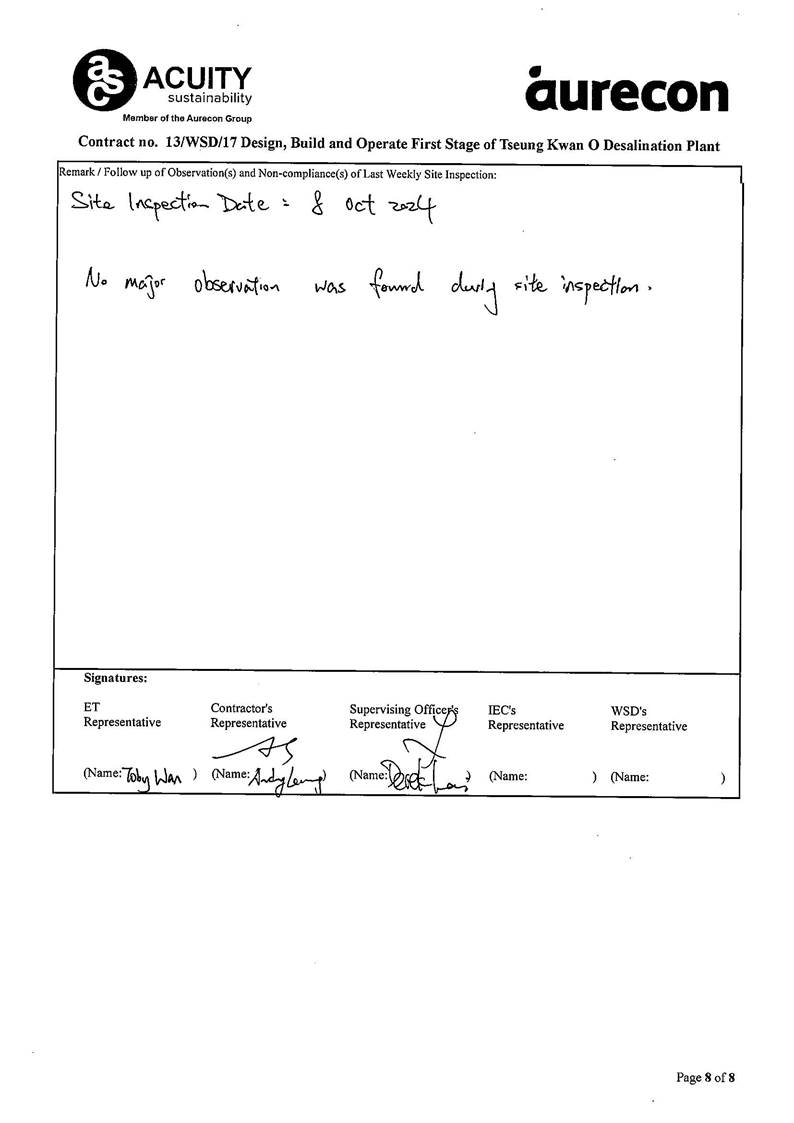 asc ACUITY
sustainability
Member of the Aurecon Group
aurecon
Contract no. 13/WSD/17 Design, Build and Operate First Stage of Tseung Kwan O Desalination Plant
Remark / Follow up of Observation(s) and Non-compliance(s) of Last Weekly Site Inspection:
Site Inspection Date : 8 Oct 2024
No major observation was found during site inspection.
Signatures:
ET Representative
Contractor's Representative
Supervising Officer's Representative
IEC's Representative
WSD's Representative
(Name: Toby Wan )
(Name: Andy Leung)
(Name: Derek )
(Name: )
(Name: )
Page 8 of 8